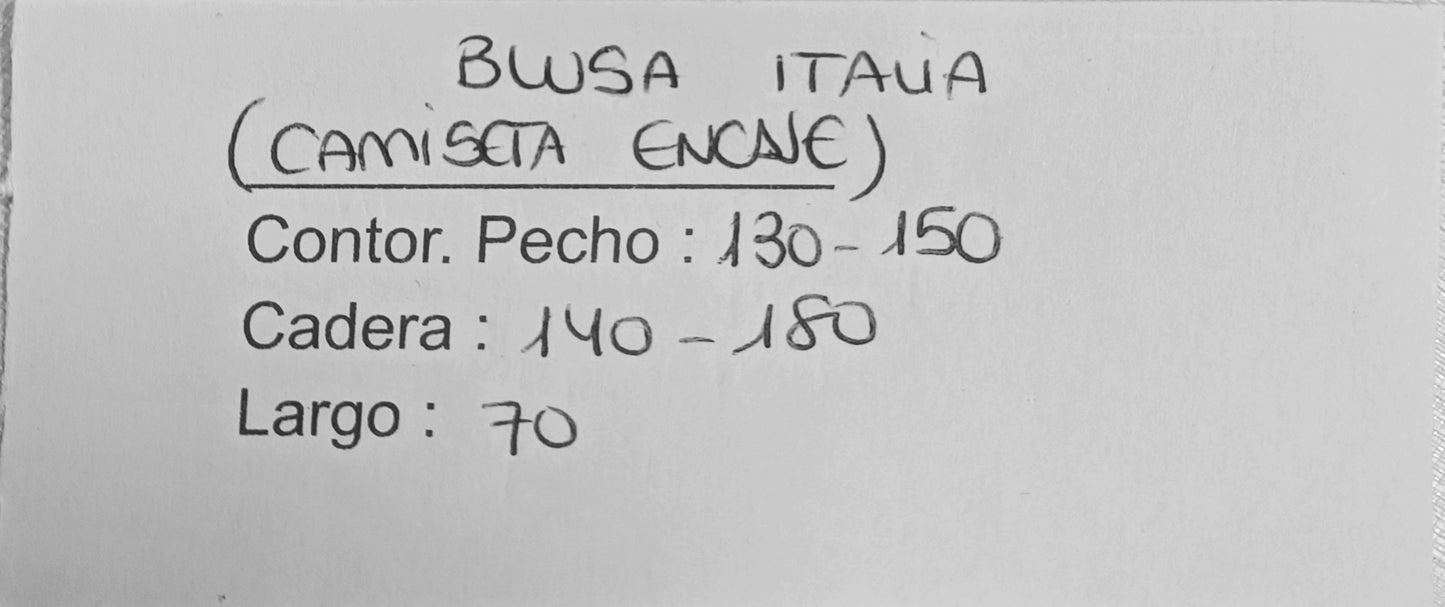 BLUSA ITALIA
(CAMISETA ENCAJE)
Contor. Pecho : 130 - 150
Cadera : 140 - 180
Largo : 70